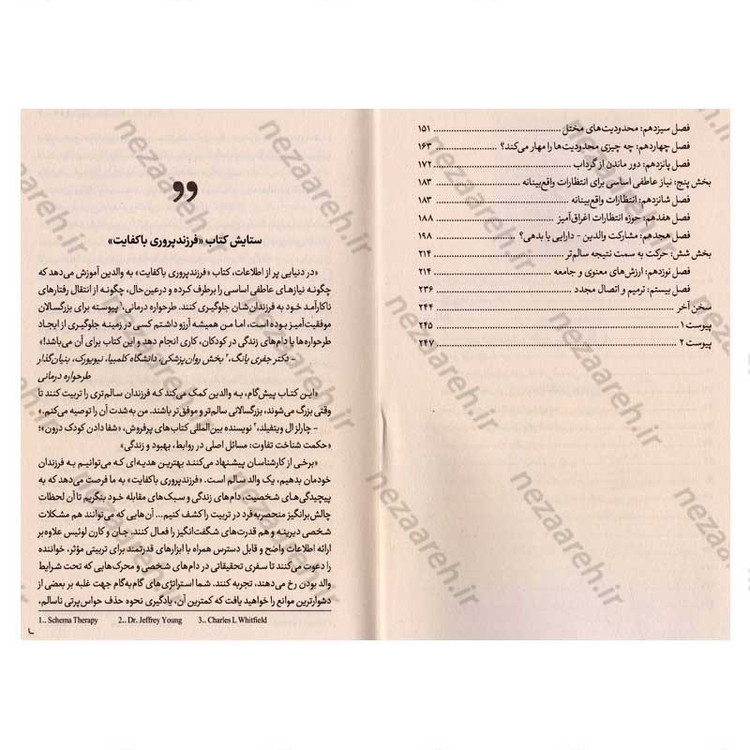 فصل سیزدهم: محدودیت‌های مختل ........ ۱۵۱
فصل چهاردهم: چه چیزی محدودیت‌ها را مهار می‌کند؟ ........ ۱۶۳
فصل پانزدهم: دور ماندن از گرداب ........ ۱۷۲
بخش پنج: نیاز عاطفی اساسی برای انتظارات واقع‌بینانه ........ ۱۸۳
فصل شانزدهم: انتظارات واقع‌بینانه ........ ۱۸۳
فصل هفدهم: حوزه انتظارات اغراق‌آمیز ........ ۱۸۸
فصل هجدهم: مشارکت والدین - دارایی یا بدهی؟ ........ ۱۹۸
بخش شش: حرکت به سمت نتیجه سالم‌تر ........ ۲۱۴
فصل نوزدهم: ارزش‌های معنوی و جامعه ........ ۲۱۴
فصل بیستم: ترمیم و اتصال مجدد ........ ۲۳۶
سخن آخر ........ ۲۴۴
پیوست ۱ ........ ۲۴۵
پیوست ۲ ........ ۲۴۷
ستایش کتاب «فرزندپروری باکفایت»
«در دنیایی پر از اطلاعات، کتاب «فرزندپروری باکفایت» به والدین آموزش می‌دهد که
چگونه نیازهای عاطفی اساسی را برطرف کرده و درعین‌حال، چگونه از انتقال رفتارهای
ناکارآمد خود به فرزندان‌شان جلوگیری کنند. طرحواره درمانی،۱ پیوسته برای بزرگسالان
موفقیت‌آمیز بوده است، اما من همیشه آرزو داشتم کسی در زمینه جلوگیری از ایجاد
طرحواره‌ها یا دام‌های زندگی در کودکان، کاری انجام دهد و این کتاب برای آن می‌باشد!»
- دکتر جفری یانگ،۲ بخش روان‌پزشکی، دانشگاه کلمبیا، نیویورک، بنیان‌گذار
طرحواره درمانی
«این کتاب پیش‌گام، به والدین کمک می‌کند که فرزندان سالم‌تری را تربیت کنند تا
وقتی بزرگ می‌شوند، بزرگسالانی سالم‌تر و موفق‌تر باشند. من به‌شدت آن را توصیه می‌کنم.»
- چارلز ال ویتفیلد،۳ نویسنده بین‌المللی کتاب‌های پرفروش، «شفا دادن کودک درون»؛
«حکمت شناخت تفاوت: مسائل اصلی در روابط، بهبود و زندگی»
«برخی از کارشناسان پیشنهاد می‌کنند بهترین هدیه‌ای که می‌توانیم به فرزندان
خودمان بدهیم، یک والد سالم است. «فرزندپروری باکفایت» به ما فرصت می‌دهد که به
پیچیدگی‌های شخصیت، دام‌های زندگی و سبک‌های مقابله خود بنگریم تا آن لحظات
چالش‌برانگیز منحصربه‌فرد در تربیت را کشف کنیم... آن‌هایی که می‌توانند هم مشکلات
شخصی دیرینه و هم قدرت‌های شگفت‌انگیز را فعال کنند. جان و کارن لوئیس علاوه بر
ارائه اطلاعات واضح و قابل دسترس همراه با ابزارهای قدرتمند برای تربیتی مؤثر، خواننده
را دعوت می‌کنند تا سفری تحقیقاتی در دام‌های شخصی و محرک‌هایی که تحت شرایط
والد بودن رخ می‌دهند، تجربه کنند. شما استراتژی‌های گام‌به‌گام جهت غلبه بر بعضی از
دشوارترین موانع را خواهید یافت که کمترین آن، یادگیری نحوه حذف حواس‌پرتی ناسالم،
1.. Schema Therapy 2.. Dr. Jeffrey Young 3.. Charles L Whitfield
nezaareh.ir
nezaareh.ir
nezaareh.ir
nezaareh.ir
nezaareh.ir
nezaareh.ir
nezaareh.ir